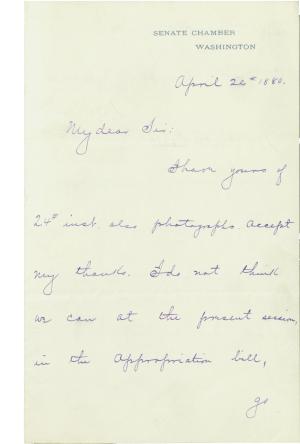 SENATE CHAMBER
WASHINGTON
April 26th 1880.
My dear Sir:
I have yours of
24th inst. also photographs accept
my thanks. I do not think
we can at the present session,
in the appropriation bill,
go